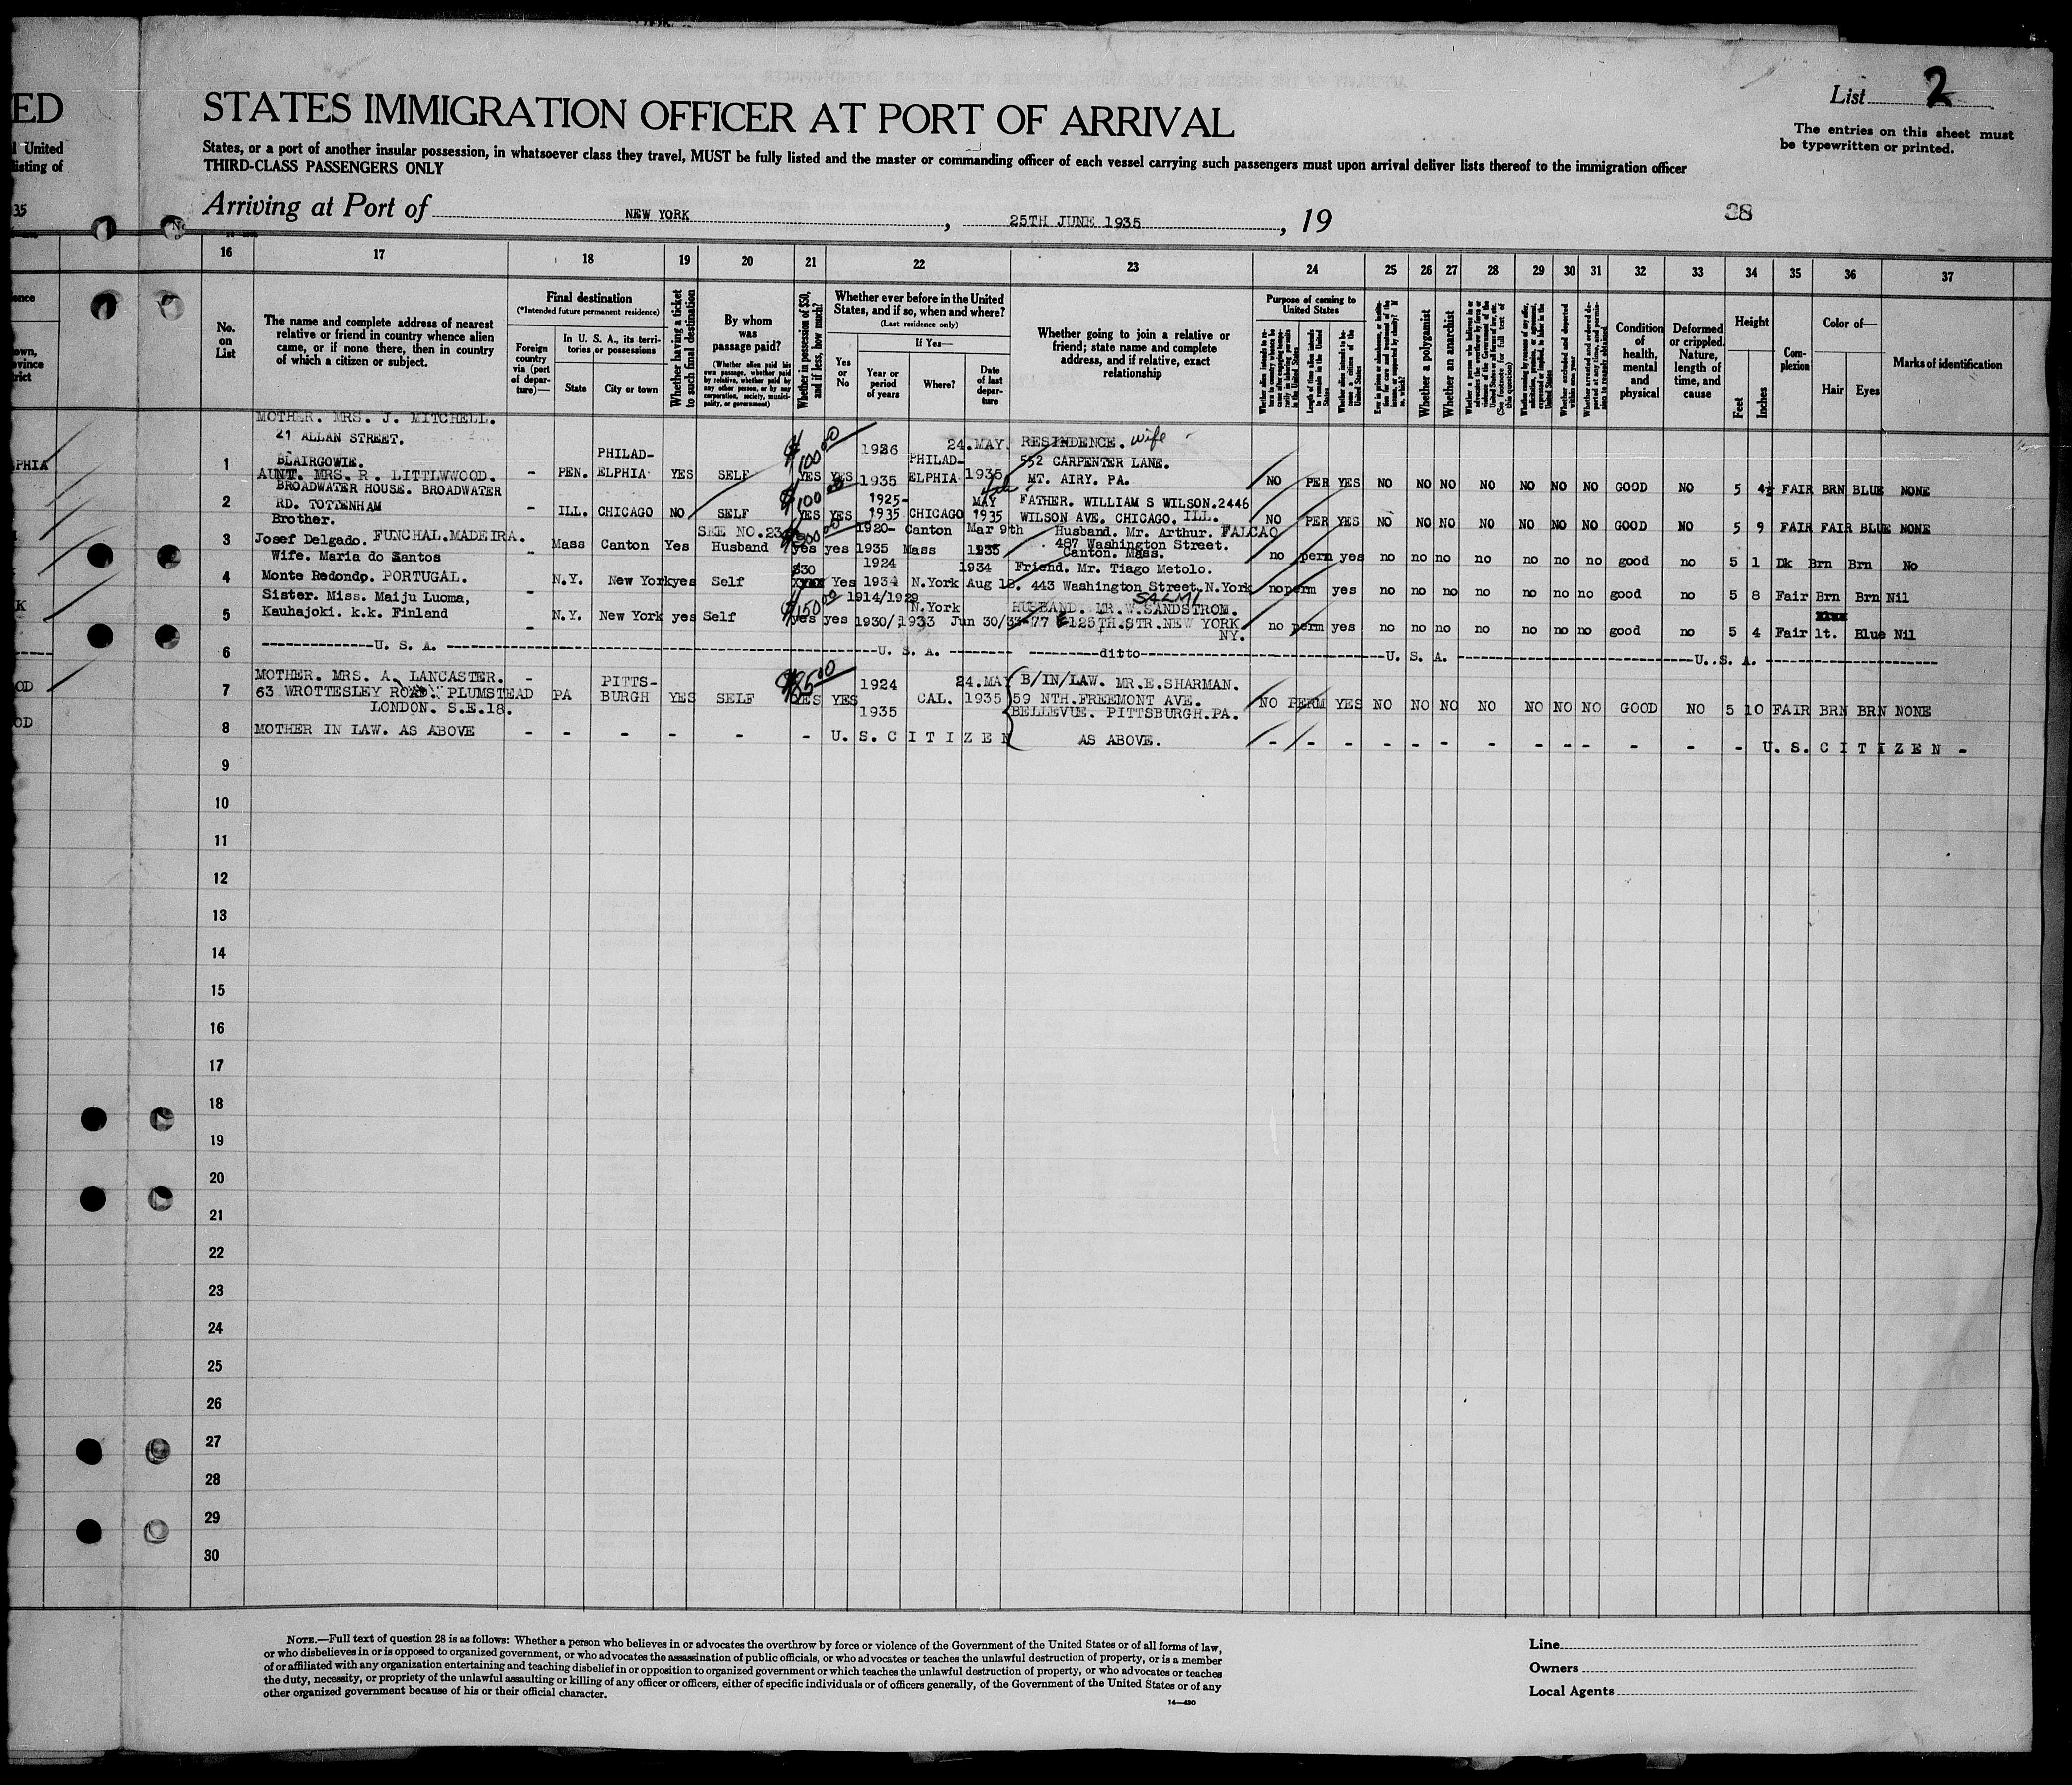 ED
STATES IMMIGRATION OFFICER AT PORT OF ARRIVAL
List 2
The entries on this sheet must
be typewritten or printed.
l United
listing of
States, or a port of another insular possession, in whatsoever class they travel, MUST be fully listed and the master or commanding officer of each vessel carrying such passengers must upon arrival deliver lists thereof to the immigration officer
THIRD-CLASS PASSENGERS ONLY
35
Arriving at Port of NEW YORK, 25TH JUNE 1935, 19
38
16 17 18 19 20 21 22 23 24 25 26 27 28 29 30 31 32 33 34 35 36 37
No. on List
The name and complete address of nearest relative or friend in country whence alien came, or if none there, then in country of which a citizen or subject.
Final destination
(*Intended future permanent residence)
Foreign country via (port of departure)—
In U. S. A., its territories or possessions
State
City or town
Whether having a ticket to such final destination
By whom was passage paid?
(Whether alien paid his own passage, whether paid by relative, whether paid by any other person, or by any corporation, society, municipality, or government)
Whether in possession of $50, and if less, how much?
Whether ever before in the United States, and if so, when and where?
(Last residence only)
Yes or No
If Yes—
Year or period of years
Where?
Date of last departure
Whether going to join a relative or friend; state name and complete address, and if relative, exact relationship
Purpose of coming to United States
Whether a polygamist
Whether an anarchist
Condition of health, mental and physical
Deformed or crippled. Nature, length of time, and cause
Height
Feet
Inches
Complexion
Color of—
Hair
Eyes
Marks of identification
MOTHER. MRS. J. MITCHELL.
21 ALLAN STREET. 24.MAY. RESINDENCE. wife
PHILAD- $100 00 1926 PHILAD- 552 CARPENTER LANE.
1 BLAIRGOWIE. - PEN. ELPHIA YES SELF YES YES 1935 ELPHIA 1935 MT. AIRY. PA. NO PER YES NO NO NO NO NO NO NO GOOD NO 5 4½ FAIR BRN BLUE NONE
AUNT. MRS. R. LITTLWWOOD.
BROADWATER HOUSE. BROADWATER $100 1925- MAY FATHER. WILLIAM S WILSON.2446
2 RD. TOTTENHAM - ILL. CHICAGO NO SELF YES YES 1935 CHICAGO 1935 WILSON AVE. CHICAGO. ILL. NO PER YES NO NO NO NO NO NO NO GOOD NO 5 9 FAIR FAIR BLUE NONE
Brother. SEE NO.23 1920- Canton Mar 9th Husband. Mr. Arthur. FALCAO
3 Josef Delgado. FUNCHAL.MADEIRA. - Mass Canton Yes Husband yes yes 1935 Mass 1935 487 Washington Street.
Canton. Mass. no perm yes no no no no no no no good no 5 1 Dk Brn Brn No
Wife. Maria do Santos $30 1924 1934 Friend. Mr. Tiago Metolo.
4 Monte Redondp. PORTUGAL. - N.Y. New York yes Self Yes 1934 N.York Aug 443 Washington Street. N.York no perm yes no no no no no no no good no 5 8 Fair Brn Brn Nil
Sister. Miss. Maiju Luoma, $150 00 1914/1929 N.York SALMI
HUSBAND. MR.W.SANDSTROM.
5 Kauhajoki. k.k. Finland - N.Y. New York yes Self yes yes 1930/1933 Jun 30/33 77 E 125TH.STR.NEW YORK NY. no perm yes no no no no no no no good no 5 4 Fair lt. Blue Nil
6 U. S. A. U. S. A. ditto U. S. A. U. S. A.
MOTHER. MRS. A. LANCASTER. - PITTS- 1924 24.MAY B/IN/LAW. MR.E.SHARMAN.
7 63 WROTTESLEY ROAD. PLUMSTEAD PA BURGH YES SELF YES YES CAL. 1935 59 NTH.FREEMONT AVE. NO PERM YES NO NO NO NO NO NO NO GOOD NO 5 10 FAIR BRN BRN NONE
LONDON. S.E.18. 1935 BELLEVUE. PITTSBURGH.PA.
8 MOTHER IN LAW. AS ABOVE - - - - - - U. S. C I T I Z E N AS ABOVE. - - - - - - - - - - - - - U. S. C I T I Z E N -
9
10
11
12
13
14
15
16
17
18
19
20
21
22
23
24
25
26
27
28
29
30
NOTE.—Full text of question 28 is as follows: Whether a person who believes in or advocates the overthrow by force or violence of the Government of the United States or of all forms of law,
or who disbelieves in or is opposed to organized government, or who advocates the assassination of public officials, or who advocates or teaches the unlawful destruction of property, or is a member
of or affiliated with any organization entertaining and teaching disbelief in or opposition to organized government or which teaches the unlawful destruction of property, or who advocates or teaches
the duty, necessity, or propriety of the unlawful assaulting or killing of any officer or officers, either of specific individuals or of officers generally, of the Government of the United States or of any
other organized government because of his or their official character.
14—430
Line
Owners
Local Agents